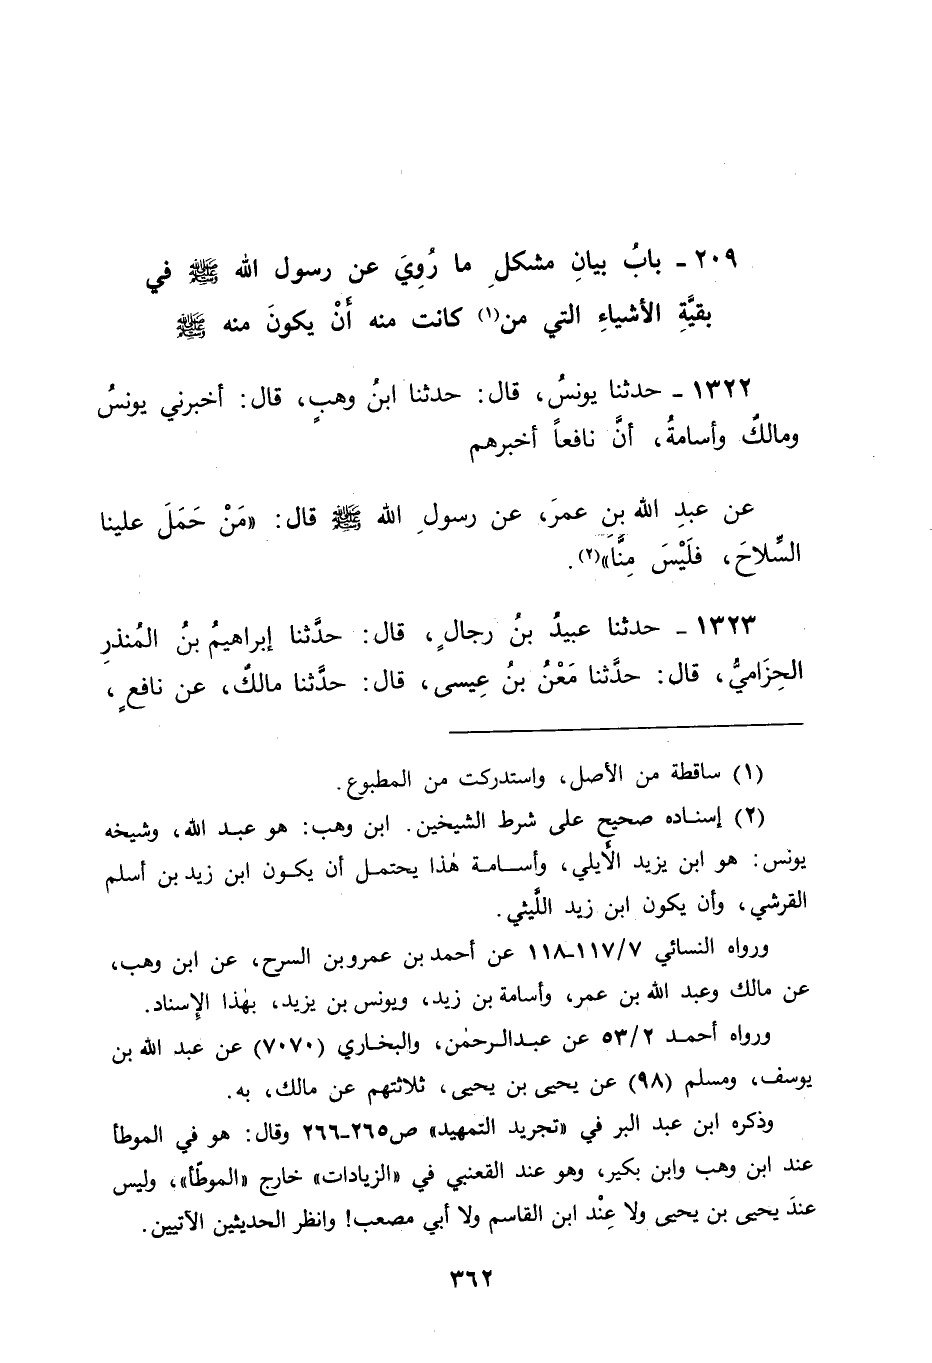 ٢٠٩ - بابُ بيانِ مشكلِ ما رُوِيَ عن رسول الله ﷺ في
بقيَّةِ الأشياءِ التي من(١) كانت منه أَنْ يكونَ منه ﷺ
١٣٢٢ - حدثنا يونسُ، قال: حدثنا ابنُ وهبٍ، قال: أخبرني يونسُ
ومالكٌ وأسامةُ، أنَّ نافعاً أخبرهم
عن عبدِ الله بنِ عمرَ، عن رسولِ الله ﷺ قال: «مَنْ حَمَلَ علينا
السِّلاحَ، فلَيْسَ مِنَّا»(٢).
١٣٢٣ - حدثنا عبيدُ بنُ رجالٍ، قال: حدَّثنا إبراهيمُ بنُ المُنذرِ
الحِزَاميُّ، قال: حدَّثنا مَعْنُ بنُ عِيسى، قال: حدَّثنا مالكٌ، عن نافعٍ،
(١) ساقطة من الأصل، واستدركت من المطبوع.
(٢) إسناده صحيح على شرط الشيخين. ابن وهب: هو عبد الله، وشيخه
يونس: هو ابن يزيد الأيلي، وأسامة هٰذا يحتمل أن يكون ابن زيد بن أسلم
القرشي، وأن يكون ابن زيد اللَّيثي.
ورواه النسائي ١١٧/٧-١١٨ عن أحمد بن عمرو بن السرح، عن ابن وهب،
عن مالك وعبد الله بن عمر، وأسامة بن زيد، ويونس بن يزيد، بهٰذا الإسناد.
ورواه أحمد ٥٣/٢ عن عبدالرحمٰن، والبخاري (٧٠٧٠) عن عبد الله بن
يوسف، ومسلم (٩٨) عن يحيى بن يحيى، ثلاثتهم عن مالك، به.
وذكره ابن عبد البر في «تجريد التمهيد» ص٢٦٥-٢٦٦ وقال: هو في الموطأ
عند ابن وهب وابن بكير، وهو عند القعنبي في «الزيادات» خارج «الموطّأ»، وليس
عندَ يحيى بن يحيى ولا عِنْد ابن القاسم ولا أبي مصعب! وانظر الحديثين الآتيين.
٣٦٢